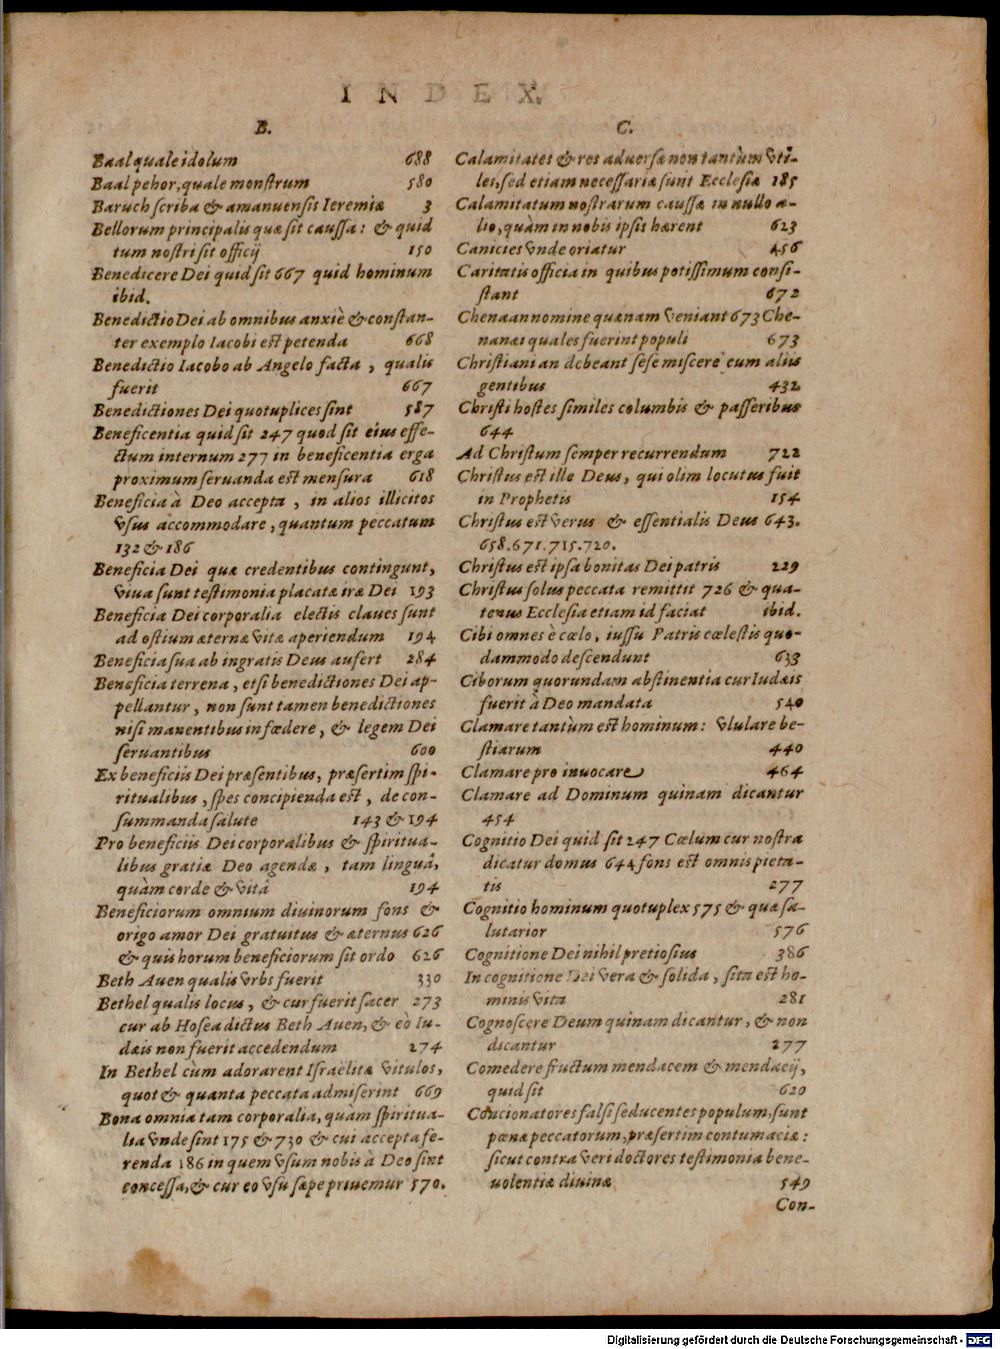 INDEX.
B.
Baal quale idolum 688
Baal pehor, quale monstrum 580
Baruch scriba & amanuensis Ieremiæ 3
Bellorum principalis quæ sit caussa: & quid
tum nostri sit officij 150
Benedicere Dei quid sit 667 quid hominum
ibid.
Benedictio Dei ab omnibus anxiè & constan-
ter exemplo Iacobi est petenda 668
Benedictio Iacobo ab Angelo facta, qualis
fuerit 667
Benedictiones Dei quotuplices sint 587
Beneficentia quid sit 247 quod sit eius effe-
ctum internum 277 in beneficentia erga
proximum seruanda est mensura 618
Beneficia à Deo accepta, in alios illicitos
vsus accommodare, quantum peccatum
132 & 186
Beneficia Dei quæ credentibus contingunt,
viua sunt testimonia placatæ iræ Dei 193
Beneficia Dei corporalia electis claues sunt
ad ostium æternæ vitæ aperiendum 194
Beneficia sua ab ingratis Deus aufert 284
Beneficia terrena, etsi benedictiones Dei ap-
pellantur, non sunt tamen benedictiones
nisi manentibus in fœdere, & legem Dei
seruantibus 600
Ex beneficiis Dei præsentibus, præsertim spi-
ritualibus, spes concipienda est, de con-
summanda salute 143 & 194
Pro beneficiis Dei corporalibus & spiritua-
libus gratiæ Deo agendæ, tam linguâ,
quàm corde & vitâ 194
Beneficiorum omnium diuinorum fons &
origo amor Dei gratuitus & æternus 626
& quis horum beneficiorum sit ordo 626
Beth Auen qualis vrbs fuerit 330
Bethel qualis locus, & cur fuerit sacer 273
cur ab Hosea dictus Beth Auen, & eò Iu-
dæis non fuerit accedendum 274
In Bethel cùm adorarent Israëlitæ vitulos,
quot & quanta peccata admiserint 669
Bona omnia tam corporalia, quam spiritua-
lia vnde sint 175 & 730 & cui accepta fe-
renda 186 in quem vsum nobis à Deo sint
concessa, & cur eo vsu sæpe priuemur 570.
C.
Calamitates & res aduersæ non tantùm vti-
les, sed etiam necessariæ sunt Ecclesiæ 185
Calamitatum nostrarum caussæ in nullo a-
lio, quàm in nobis ipsis hærent 623
Canicies vnde oriatur 456
Caritatis officia in quibus potissimum consi-
stant 672
Chenaan nomine quænam veniant 673 Che-
nanæi quales fuerint populi 673
Christiani an debeant sese miscere cum aliis
gentibus 432
Christi hostes similes columbis & passeribus
644
Ad Christum semper recurrendum 722
Christus est ille Deus, qui olim locutus fuit
in Prophetis 154
Christus est verus & essentialis Deus 643.
658.671.715.720.
Christus est ipsa bonitas Dei patris 229
Christus solus peccata remittit 726 & qua-
tenus Ecclesia etiam id faciat ibid.
Cibi omnes è cœlo, iussu Patris cœlestis quo-
dammodo descendunt 633
Ciborum quorundam abstinentia cur Iudæis
fuerit à Deo mandata 540
Clamare tantùm est hominum: vlulare be-
stiarum 440
Clamare pro inuocare 464
Clamare ad Dominum quinam dicantur
454
Cognitio Dei quid sit 247 Cœlum cur nostra
dicatur domus 644 fons est omnis pieta-
tis 277
Cognitio hominum quotuplex 575 & quæ sa-
lutarior 576
Cognitione Dei nihil pretiosius 386
In cognitione Dei vera & solida, sita est ho-
minis vita 281
Cognoscere Deum quinam dicantur, & non
dicantur 277
Comedere fructum mendacem & mendacij,
quid sit 620
Concionatores falsi seducentes populum, sunt
pœnæ peccatorum, præsertim contumaciæ:
sicut contra veri doctores testimonia bene-
uolentiæ diuinæ 549
Con-
Digitalisierung gefördert durch die Deutsche Forschungsgemeinschaft - DFG